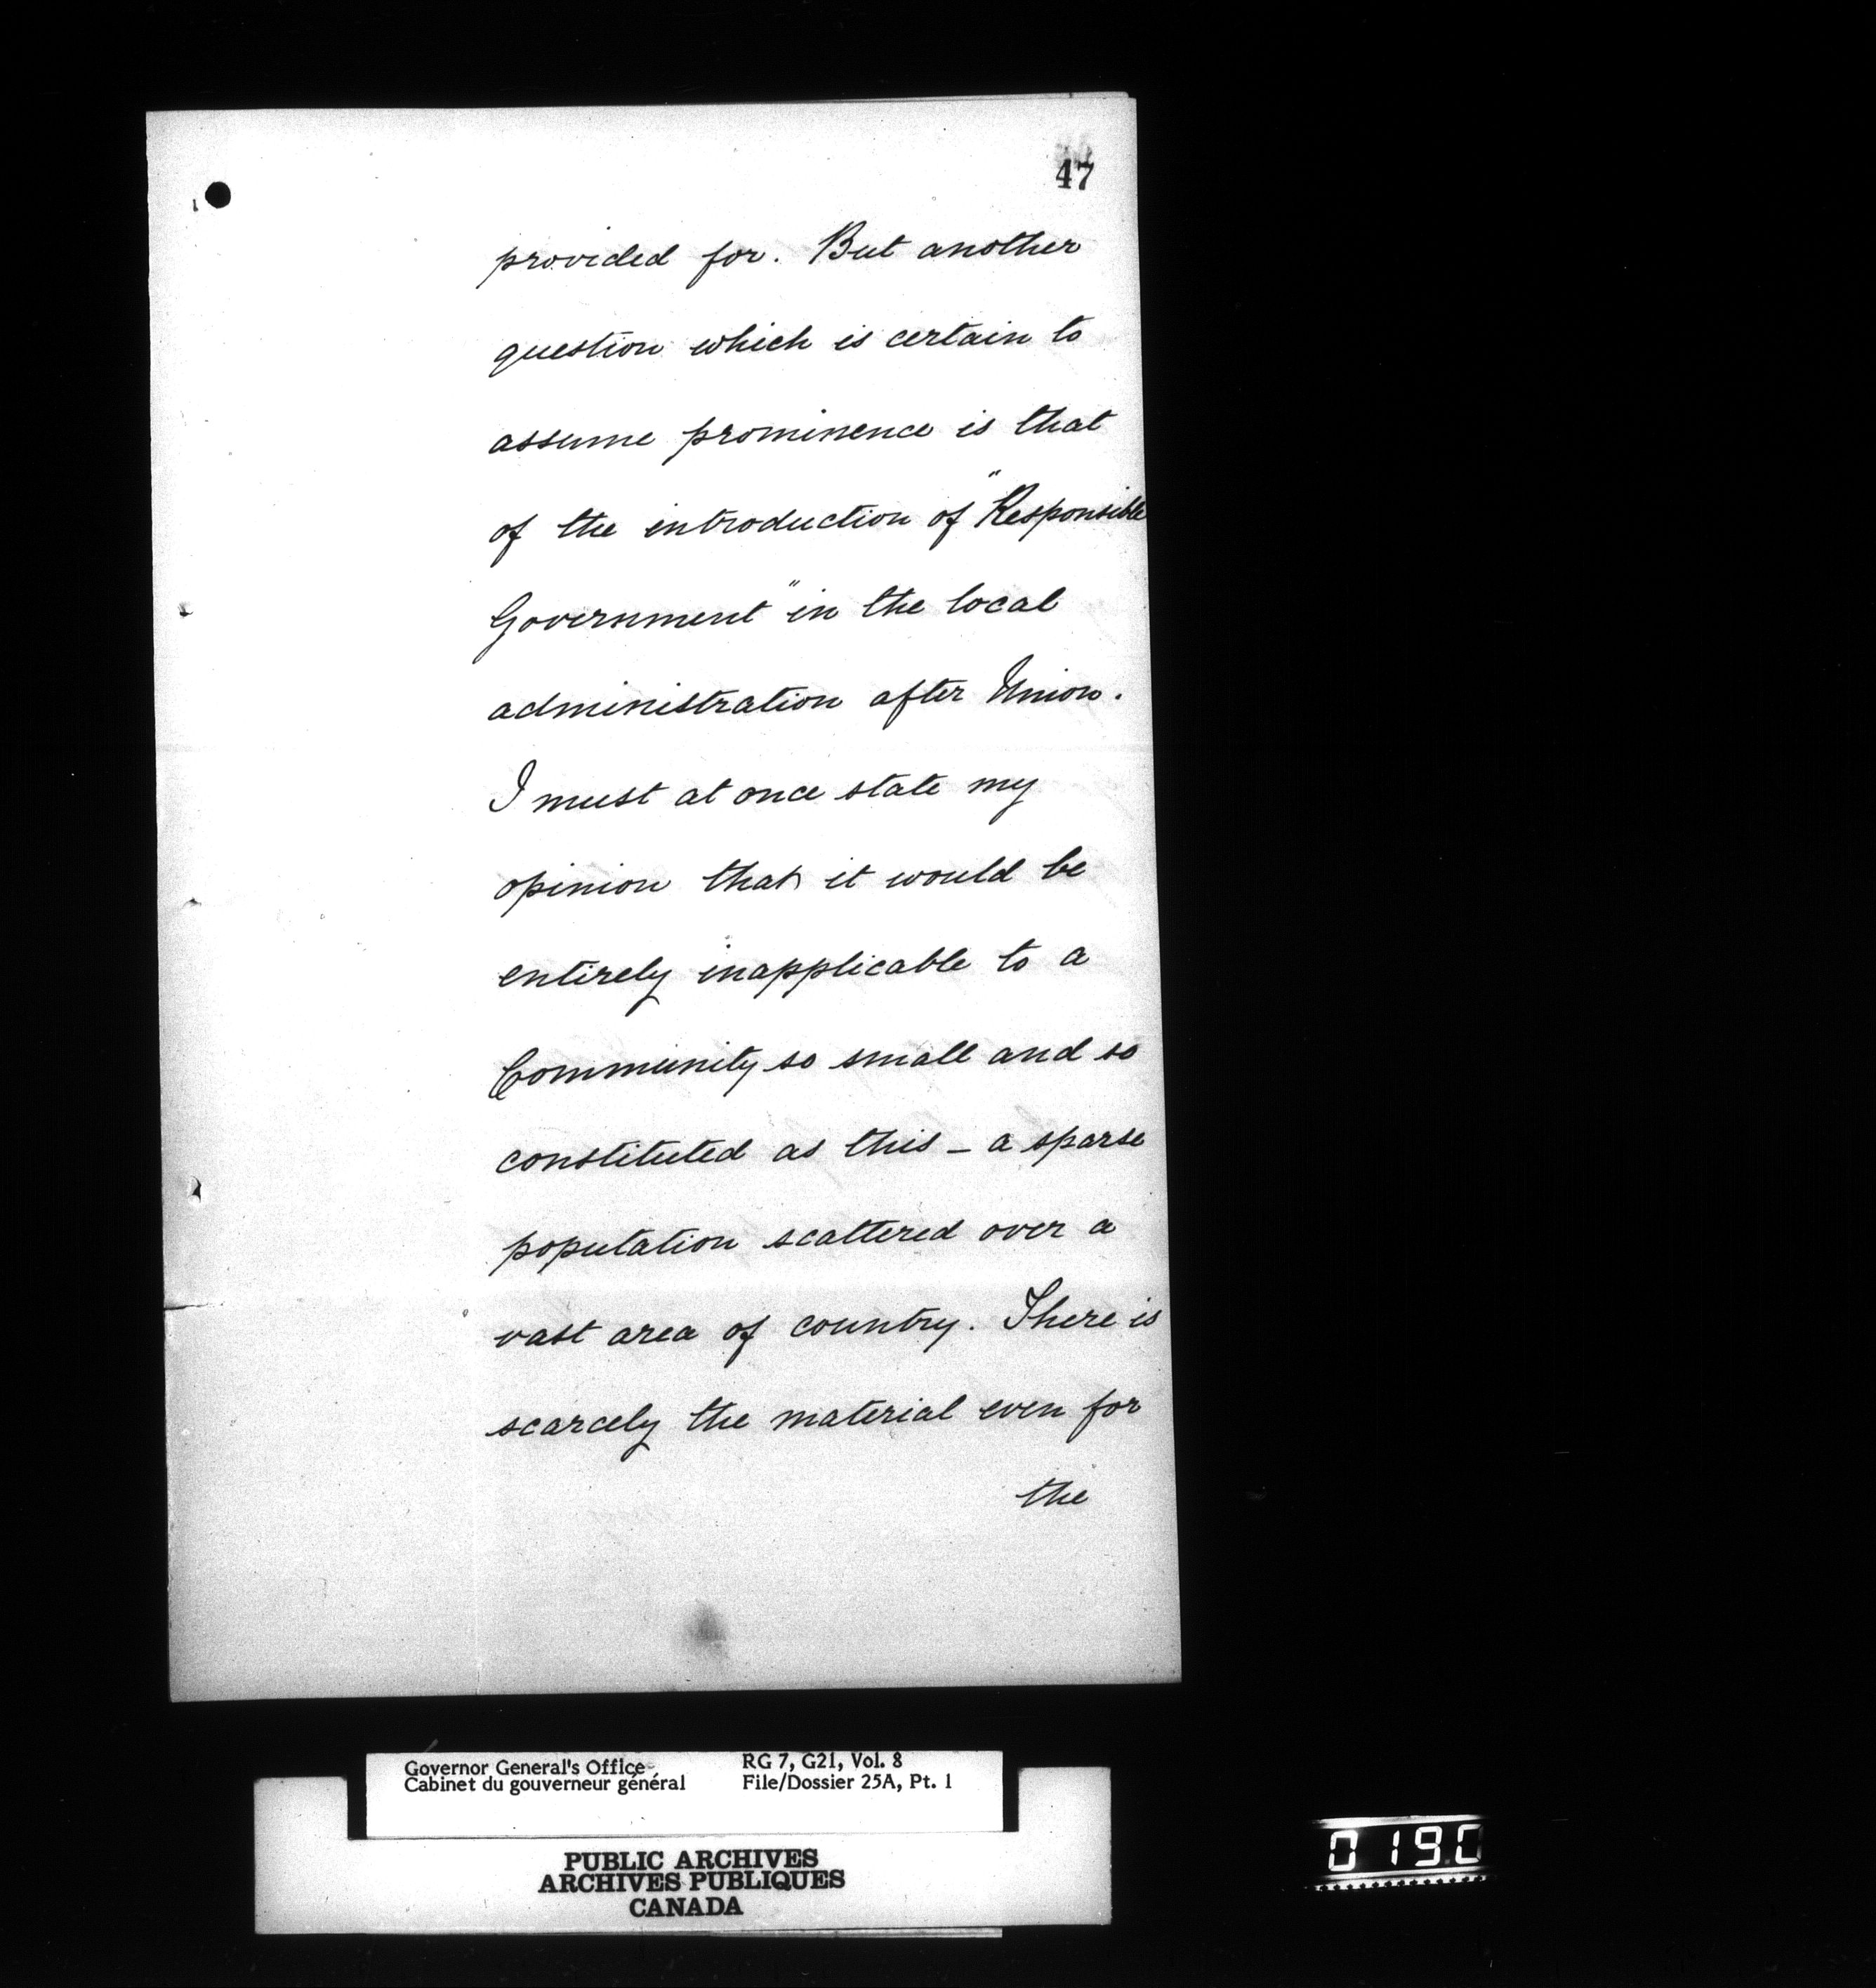 47
provided for. But another
question which is certain to
assume prominence is that
of the introduction of "Responsible
Government" in the local
administration after Union.
I must at once state my
opinion that it would be
entirely inapplicable to a
Community so small and so
constituted as this - a sparse
population scattered over a
vast area of country. There is
scarcely the material even for
the
Governor General's Office
Cabinet du gouverneur général
RG 7, G21, Vol. 8
File/Dossier 25A, Pt. 1
PUBLIC ARCHIVES
ARCHIVES PUBLIQUES
CANADA
0190